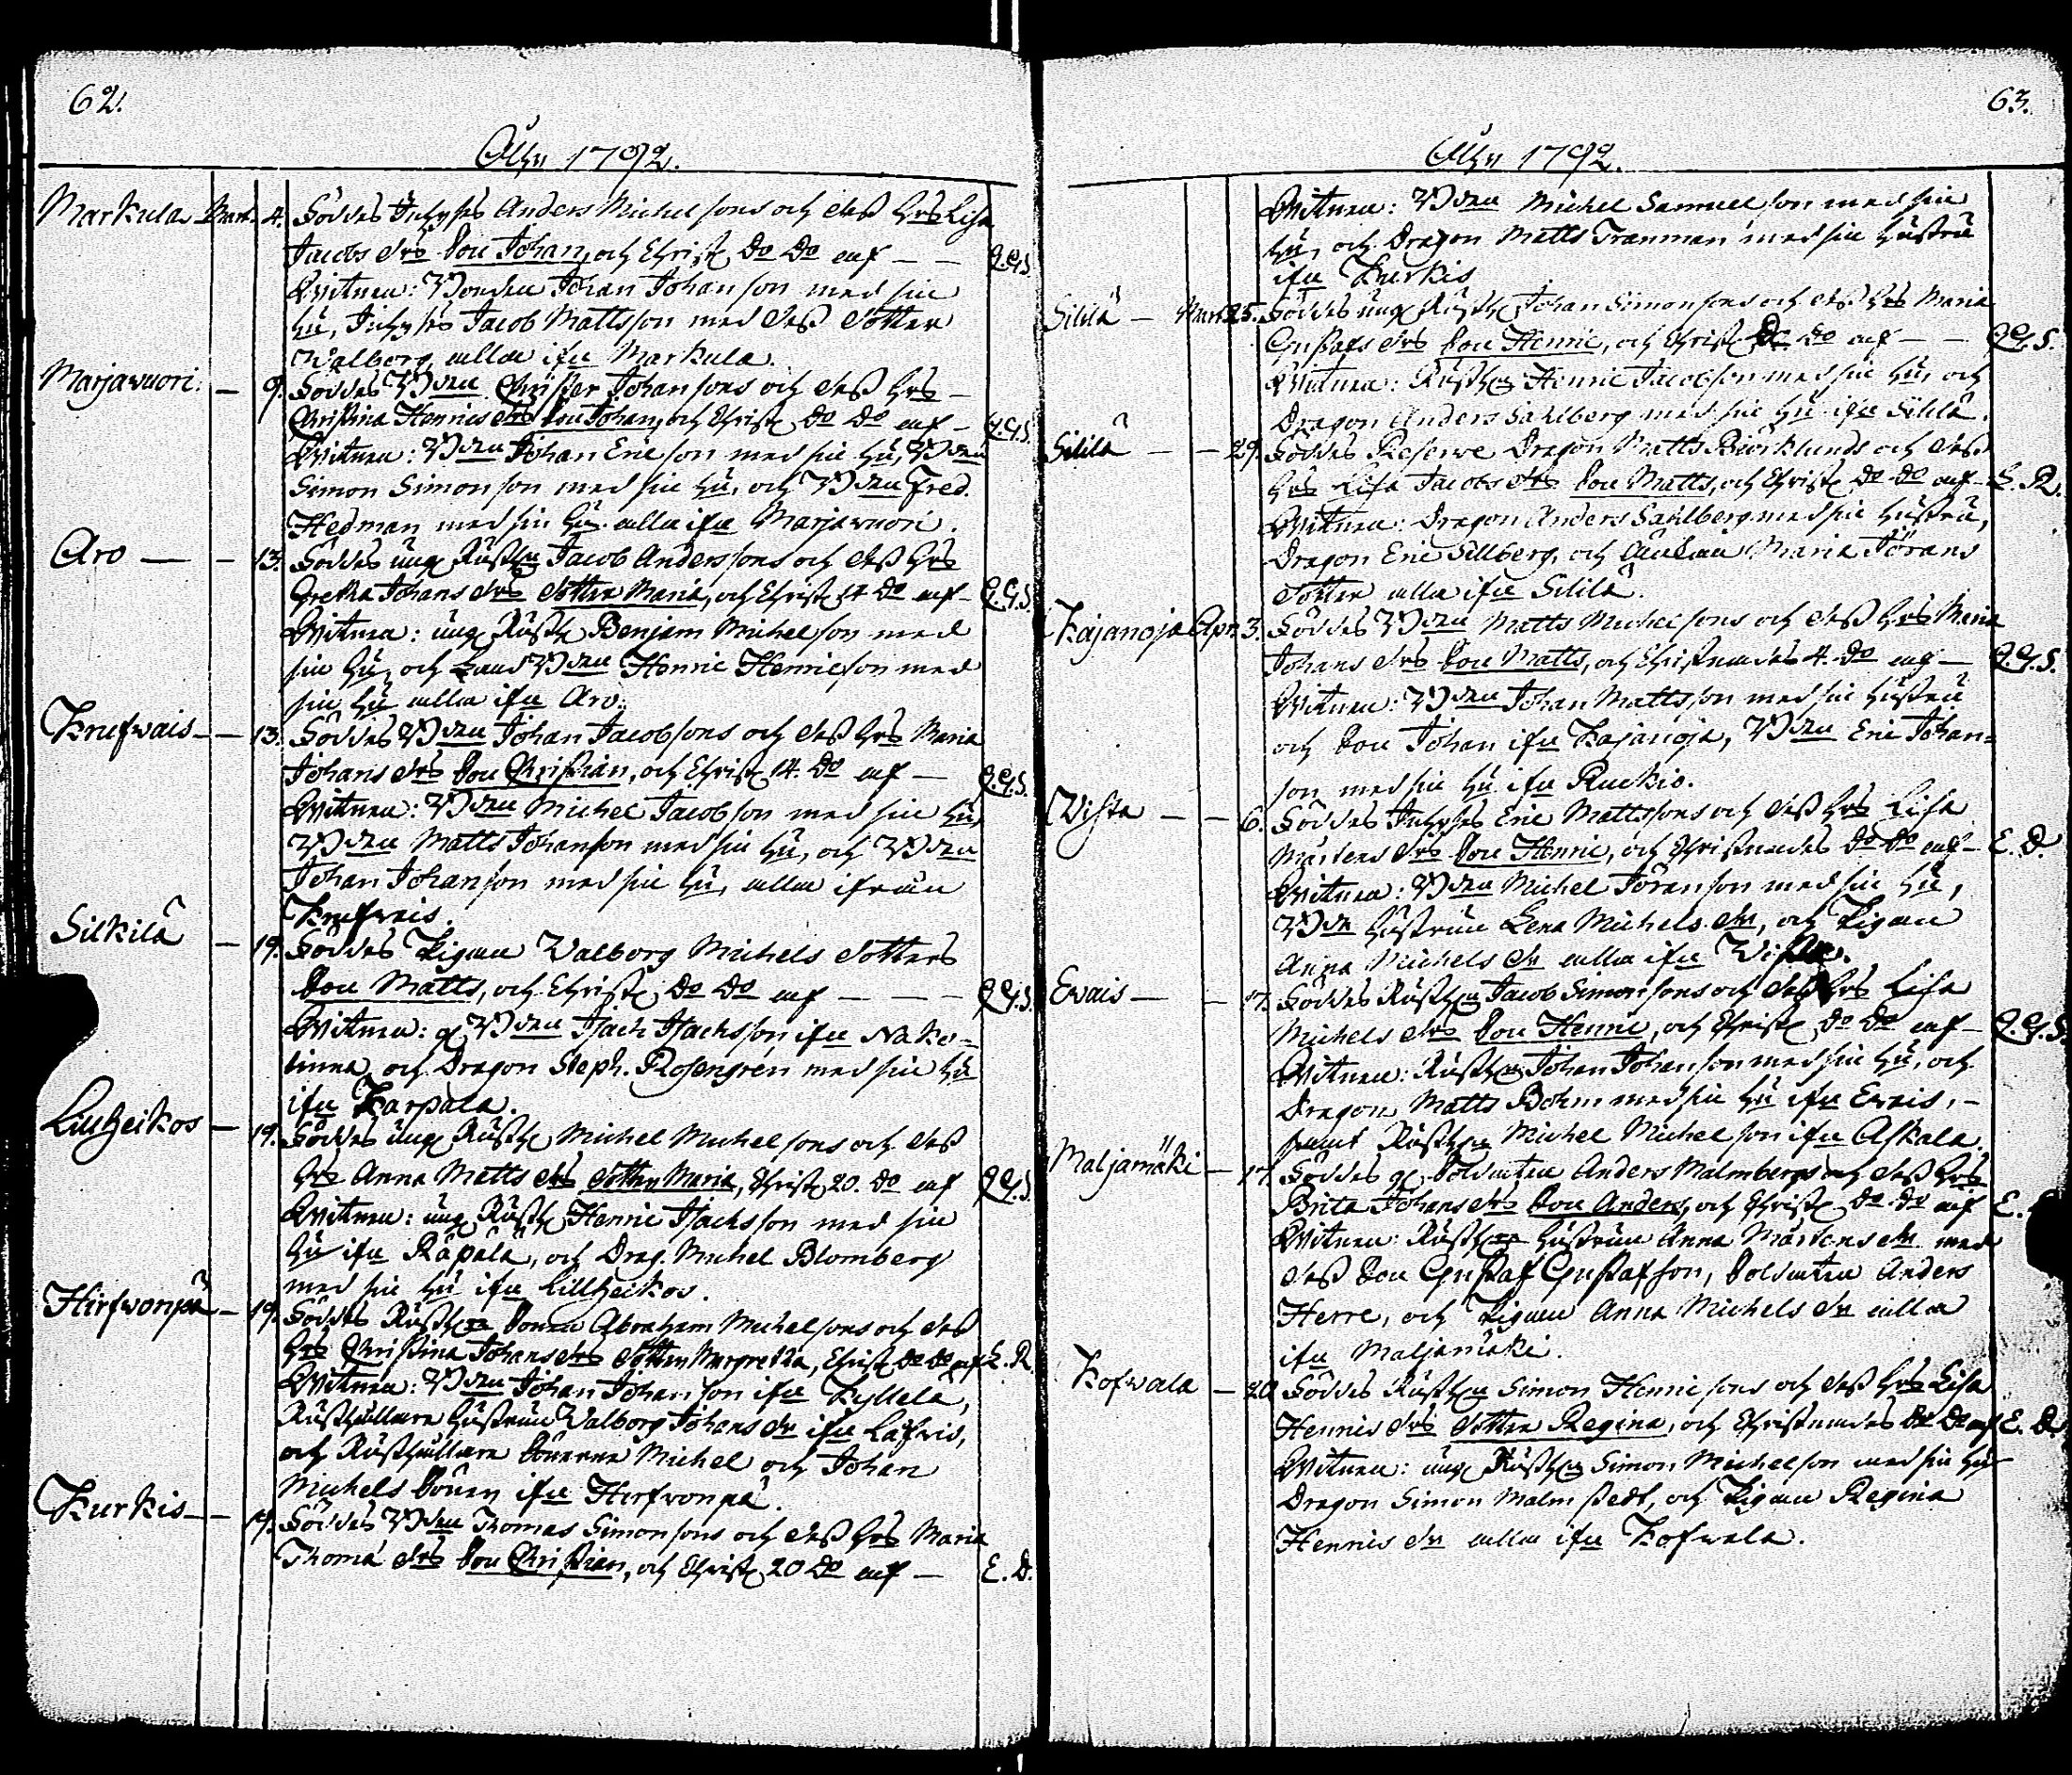 62.
Åhr 1792.
Markula Mart. 4. Föddes Inhyses Anders Michelsons och dess Hrs Lisa
Jacobs drs Son Johan, och Christ. Do Do af — — Q.G.S.
Witnen: Bonden Johan Johanson med sin
Hu, Inhyses Jacob Mattsson med dess dotter
Walborg alla ifrn Markula.
Marjawuori. — 9. Föddes Bden Christer Johansons och dess Hrs —
Christina Henrics drs Son Johan, och Christ. Do Do af — Q.G.S.
Witnen: Bden Johan Ericson med sin Hu, Bden
Simon Simonson med sin Hu, och Bden Fred.
Hedman med sin Hu. alla ifrn Marjawuori.
Aro — — 13. Föddes ung Rusth. Jacob Anderssons och dess Hrs
Gretha Johans drs dotter Maria, och Christ. 14 Do af — Q.G.S.
Witnen: ung Rusth. Benjam Michelson med
sin Hu, och Land Bden Henric Henricson med
sin Hu alla ifrn Aro.
Krufwais — — 13. Föddes Bden Johan Jacobsons och dess Hrs Maria
Johans drs Son Christian, och Christ. 14. Do af — Q.G.S.
Witnen: Bden Michel Jacobson med sin Hu,
Bden Matts Johanson med sin Hu, och Bden
Johan Johanson med sin Hu, alla ifrån
Krufwais.
Silkilä — 19. Föddes Pigan Walborg Michels dotters
Son Matts, och Christ. Do Do af — — — Q.G.S.
Witnen: g. Bden Isach Isachsson ifrn Nako-
linna, och Dragon Steph. Rosengrén med sin Hu
ifrn Karpala.
Liuheikos — 19. Föddes ung Rusth. Michel Michelsons och dess
Hrs Anna Matts drs dotter Maria, Christ. 20. Do af Q.G.S.
Witnen: ung Rusth. Henric Isachsson med sin
Hu ifrn Räpälä, och Drag. Michel Blomberg
med sin Hu ifrn Lillheikos.
Hirfwonpä — 19. Föddes Rusth. Sonen Abraham Michelsons och dess
Hrs Christina Johans drs dotter Margretha, Christ. Do Do af E. R.
Witnen: Bden Johan Johanson ifrn Kyllela,
Rusthållare Hustrun Walborg Johans dr ifrn Lafwis,
och Rusthållare Sönerne Michel och Johan
Michels Söner ifrn Hirfwonpä.
Kurkis — — 19. Föddes Bden Thomas Simonsons och dess Hrs Maria
Thomæ drs Son Christian, och Christ. 20 Do af — E. D.
63.
Åhr 1792.
Witnen: Bden Michel Samuelson med sin
Hu, och Dragon Matts Tranman med sin Hustru
ifrn Kurkis
Sililä — Mart. 25. Föddes ung Rusth. Johan Simonsons och dess Hrs Maria
Gustafs drs Son Henric, och Christ. Do. Do af — — Q.G.S.
Witnen: Rusth. Henric Jacobson med sin Hu, och
Dragon Anders Sahlberg med sin Hu ifrn Sililä.
Sililä — — 29. Föddes Reserwe Dragon Matts Biörklunds och dess
Hrs Lisa Jacobs drs Son Matts, och Christ. Do Do af — E. R.
Witnen: Dragon Anders Sahlberg med sin Hustru,
Dragon Eric Sillberg, och Enkan Maria Jörans
dotter alla ifrn Sililä.
Kajanoja Apr. 3. Föddes Bden Matts Michelsons och dess Hrs Maria
Johans drs Son Matts, och Christnades 4. Do af — Q.G.S.
Witnen: Bden Johan Mattsson med sin Hustru
och Son Johan ifrn Kajanoja, Bden Eric Johan=
son med sin Hu ifrn Ruckis.
Wista — — 6. Föddes Inhyses Eric Mattssons och dess Hrs Lisa
Mårtens drs Son Henric, och Christnades Do Do af — E. D.
Witnen: Bden Michel Jöranson med sin Hu,
Bde Hustrun Lena Michels dr, och Pigan
Anna Michels dr alla ifrn Wista.
Ewais — — 17. Föddes Rusth. Jacob Simonsons och dess Hrs Lisa
Michels drs Son Henric, och Christ. Do Do af — Q.G.S.
Witnen: Rusth. Johan Johanson med sin Hu, och
Dragon Matts Bohm med sin Hu ifrn Ewais, —
samt Rusth. Michel Michelson ifrn Askala.
Maljamäki — 17. Föddes g. Soldaten Anders Malmbergs och dess Hrs
Brita Johans drs Son Anders, och Christ. Do Do af E.
Witnen: Rusth. Hustrun Anna Mårtens dr med
dess Son Gustaf Gustafson, Soldaten Anders
Herre, och Pigan Anna Michels dr alla
ifrn Maljamäki.
Kofwala — 20 Föddes Rusth. Simon Henricsons och dess Hrs Lisa
Henrics drs dotter Regina, och Christnades Do Do af E. D.
Witnen: ung Rusth. Simon Michelson med sin Hu
Dragon Simon Malmstedt, och Pigan Regina
Henrics dr alla ifrn Kofwala.